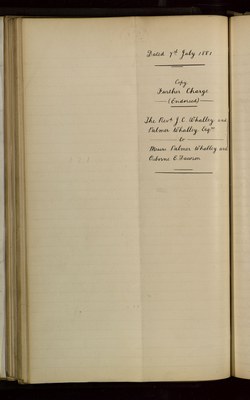 Dated 7th July 1881
Copy
Further Charge
(Endorsed)
The Revd J. C. Whalley and
Palmer Whalley Esqre
to
Messrs Palmer Whalley and
Osborne C Dawson